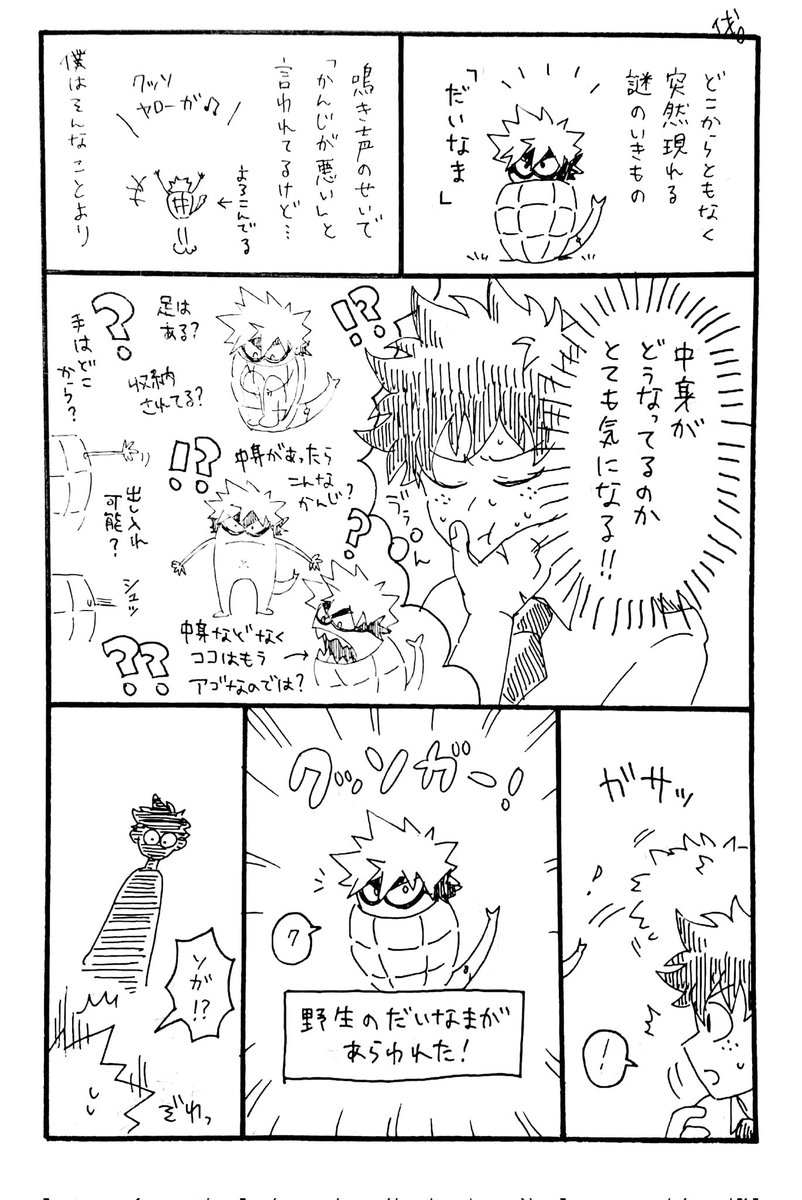 どこからともなく
突然現れる
謎のいきもの
「だいなま」
鳴き声のせいで
「かんじが悪い」と
言われてるけど…
クッソ
ヤローが♪
よろこんでる
僕はそんなことより
中身が
どうなってるのか
とても気になる!!
!?
うぅ〜ん
?
足は
ある?
収納
されてる?
手はどこ
から?
!?
中身があったら
こんな
かんじ?
出し入れ
可能?
シュッ
?
中身などなく
ココはもう
アゴなのでは?
??
ガサッ
♪
!
クッソガー!
ク
野生のだいなまが
あらわれた!
ソガ!?
ぞわっ